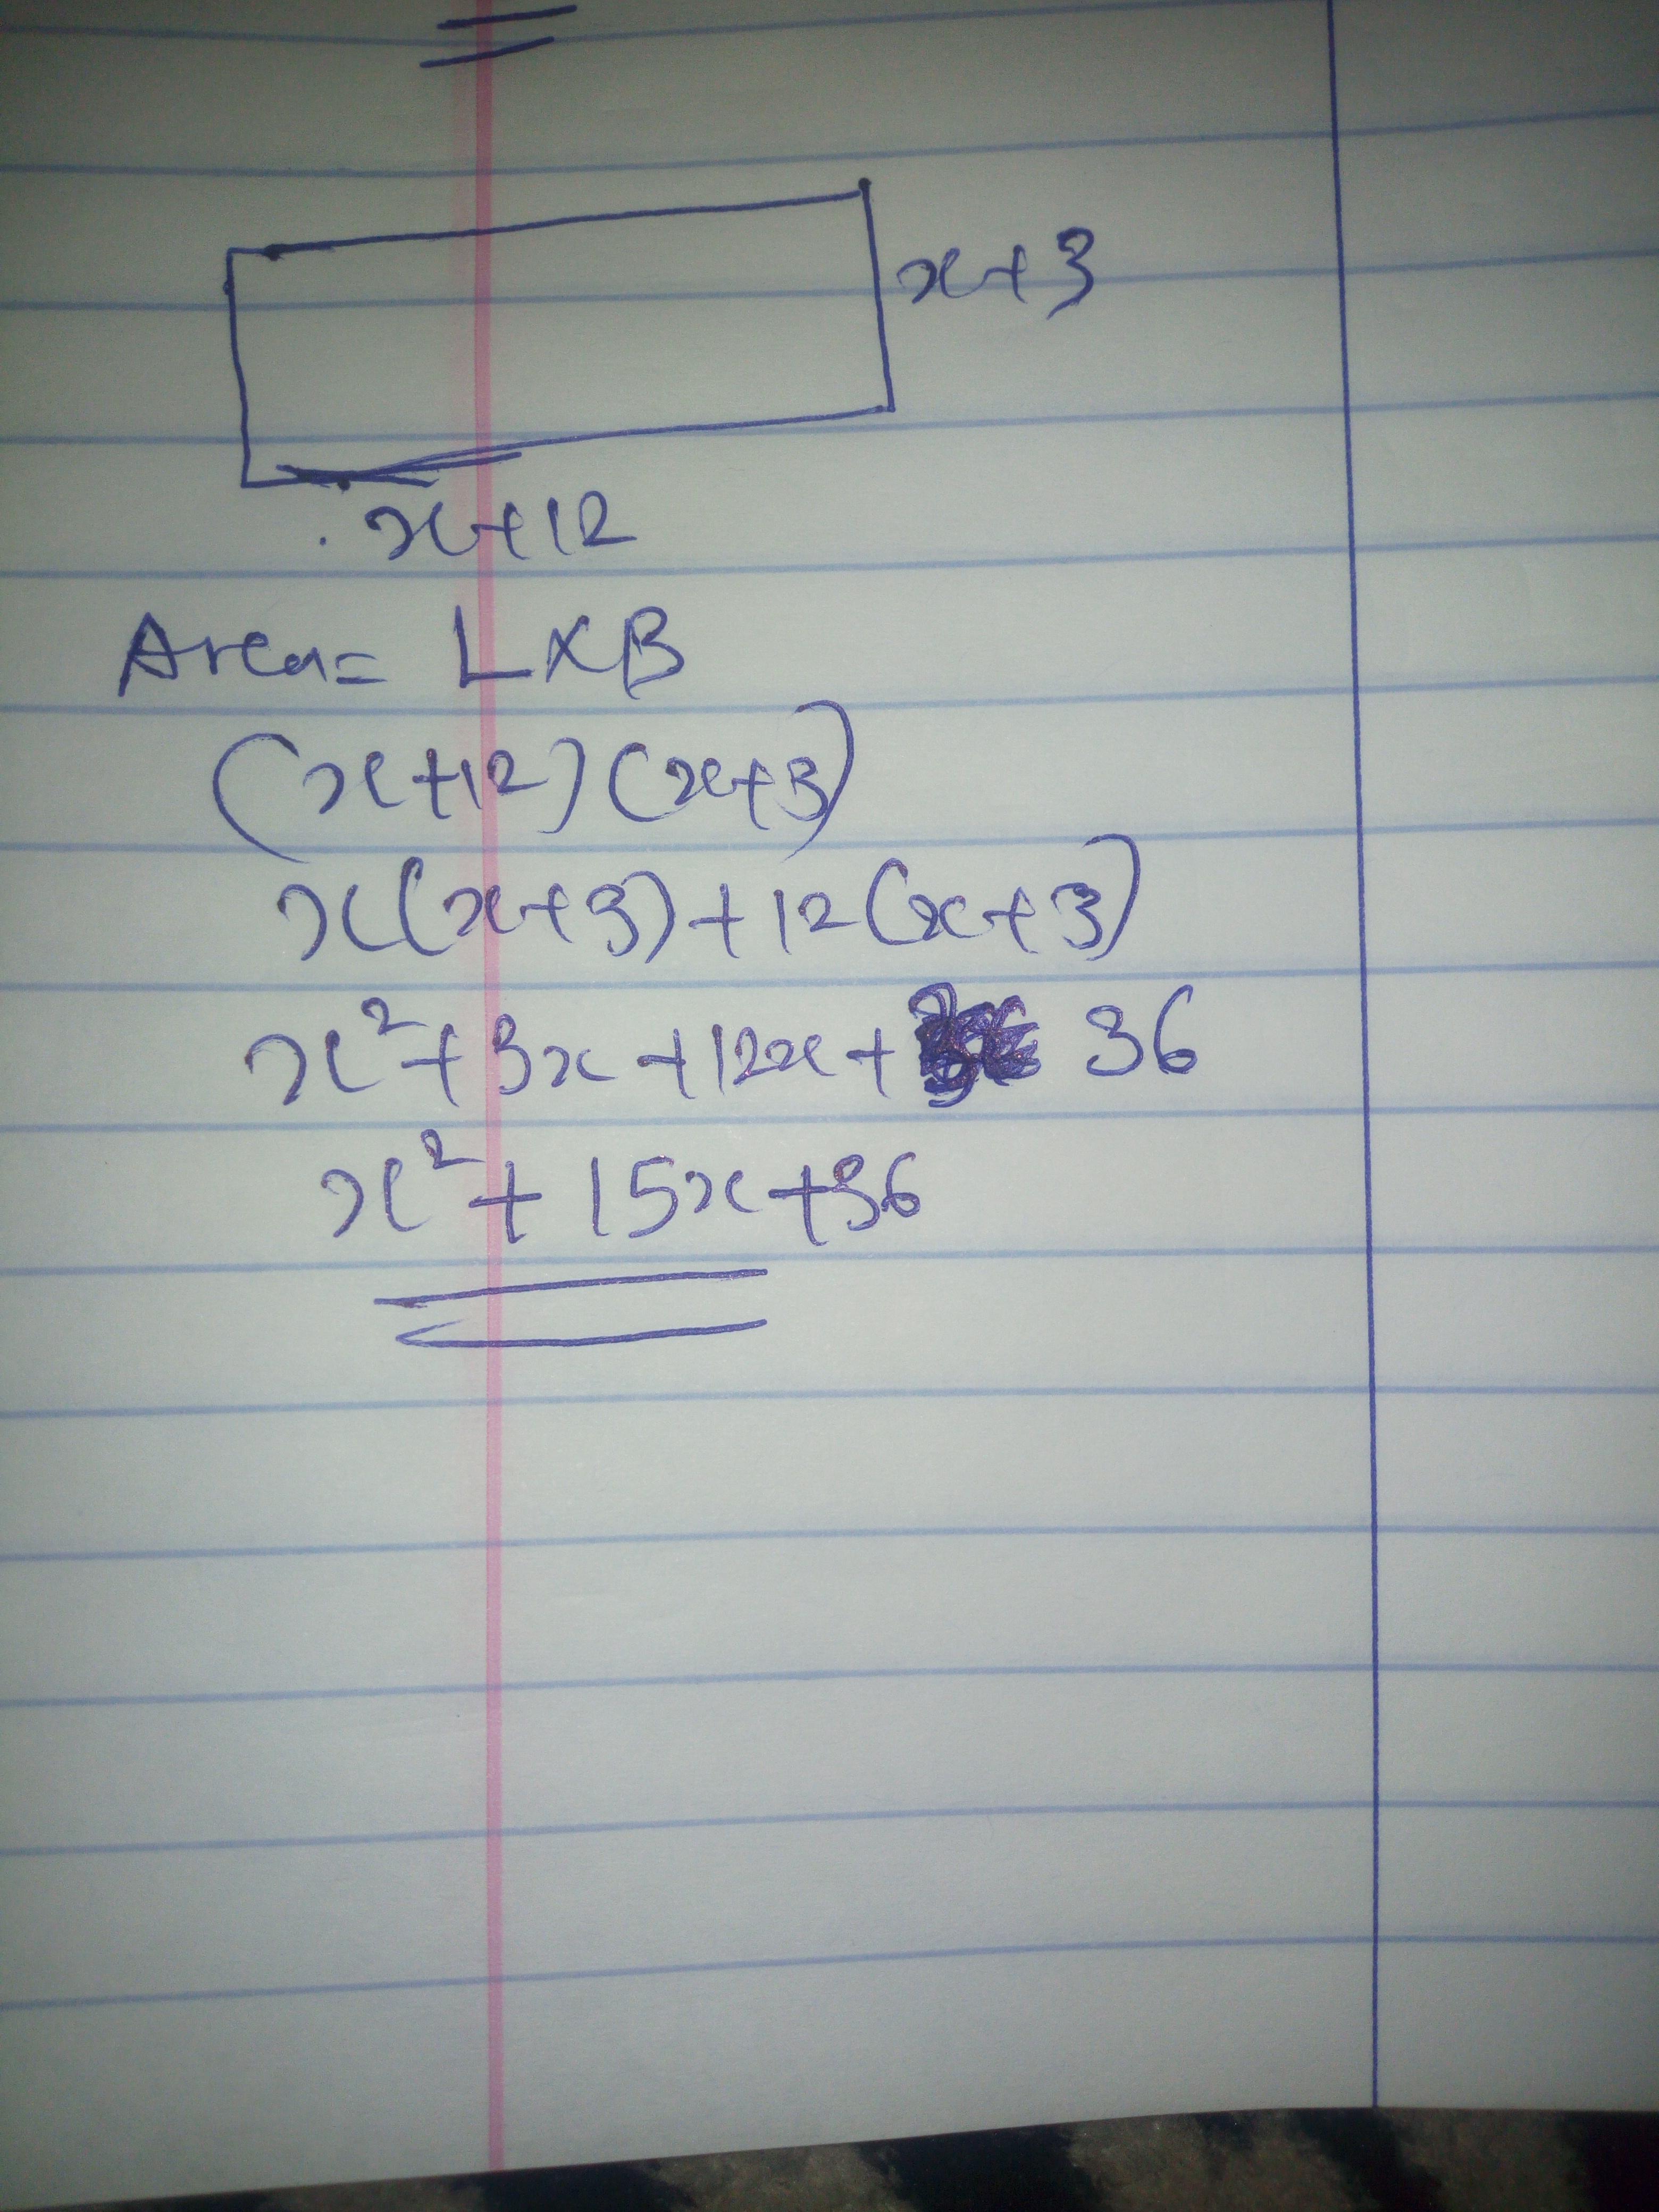 x+3
x+12
Area= L×B
(x+12)(x+3)
x(x+3)+12(x+3)
x²+3x+12x+ 36
x²+15x+36